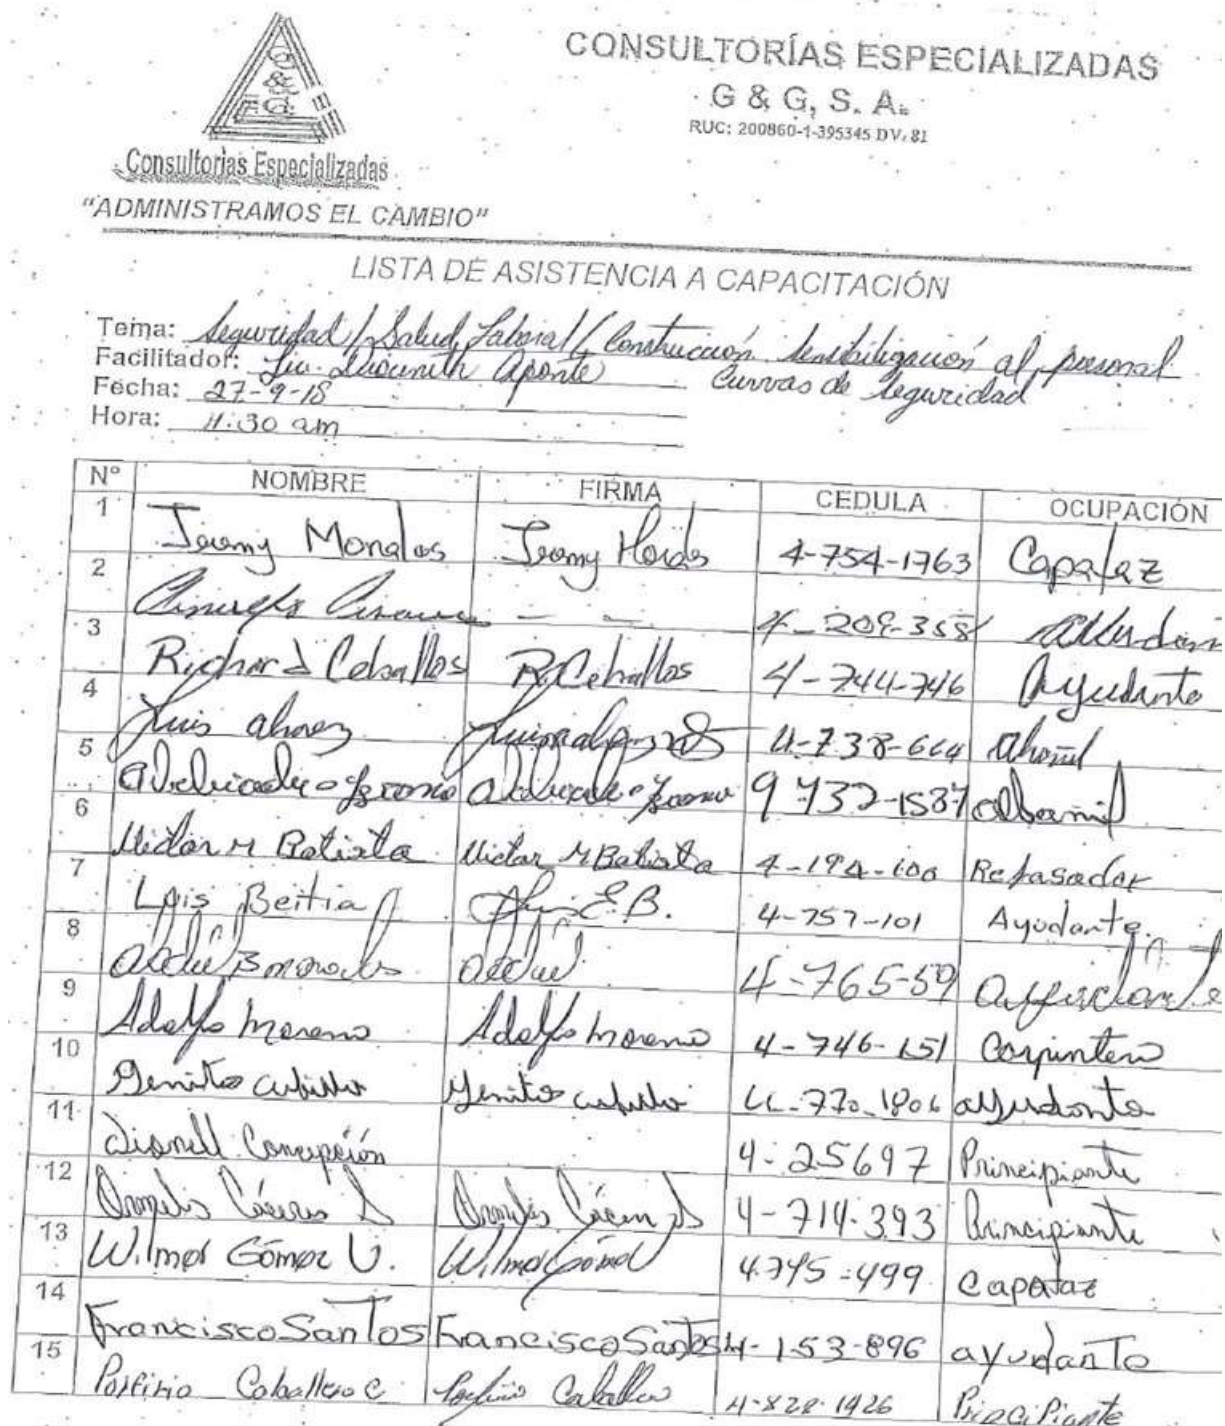 G & G
Consultorías Especializadas
"ADMINISTRAMOS EL CAMBIO"
CONSULTORÍAS ESPECIALIZADAS
G & G, S. A.
RUC: 200860-1-395345 DV. 81
LISTA DE ASISTENCIA A CAPACITACIÓN
Tema: Seguridad / Salud Laboral / Construcción Sensibilización al personal
Facilitador: Lic. Aponte Curvas de Seguridad
Fecha: 27-9-18
Hora: 11:30 am
N° NOMBRE FIRMA CEDULA OCUPACIÓN
1 Jeremy Morales Jeremy 4-754-1763 Capataz
2 4-209-358
3 Richard Ceballos R. Ceballos 4-744-746 Ayudante
4 Luis 4-738-664
5 9-732-1587 albañil
6 Victor M Batista Victor M Batista 4-194-600 Repasador
7 Luis Beitia Luis E.B. 4-757-101 Ayudante.
8 4-765-59 ayudante
9 Adolfo Moreno Adolfo Moreno 4-746-151 Carpintero
10 4-770-1806 ayudante
11 Concepción 4-25697 Principiante
12 Cáceres 4-714-393 Principiante
13 Wilmer Gómez V. Wilmer Gómez 4.745-499 Capataz
14 Francisco Santos Francisco Santos 4-153-896 ayudante
15 Porfirio Caballero C. Porfirio Caballero 4-828-1926 Principiante